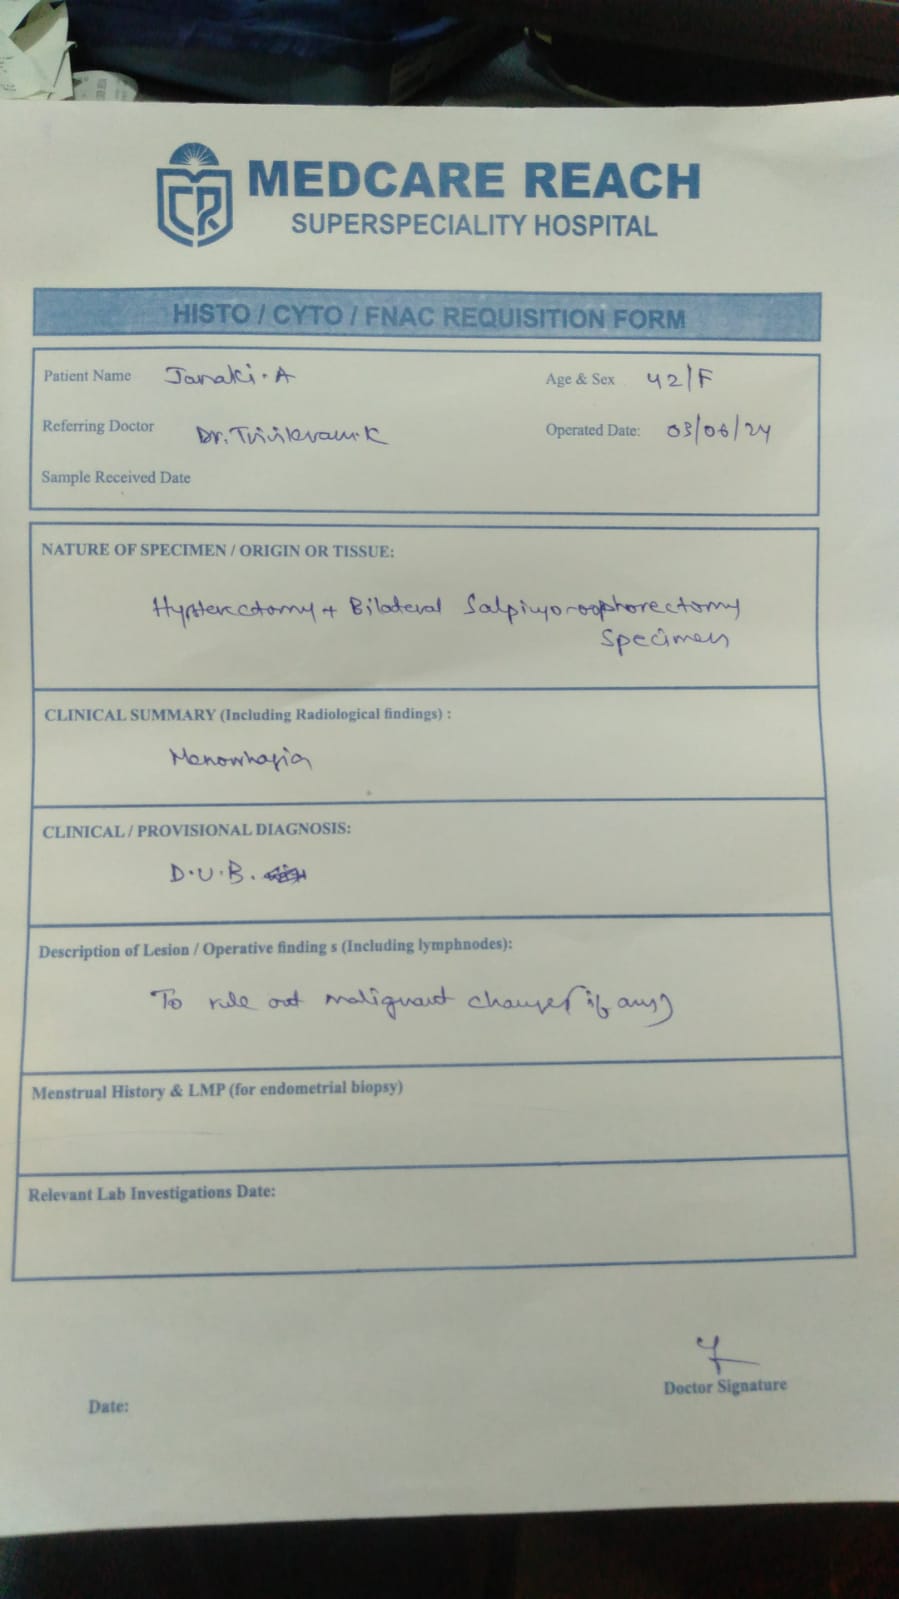 MEDCARE REACH
SUPERSPECIALITY HOSPITAL
HISTO / CYTO / FNAC REQUISITION FORM
Patient Name Janaki. A Age & Sex 42/F
Referring Doctor Dr. Trivikram. K Operated Date: 03/06/24
Sample Received Date
NATURE OF SPECIMEN / ORIGIN OR TISSUE:
Hysterectomy + Bilateral Salpingo-oophorectomy
Specimen
CLINICAL SUMMARY (Including Radiological findings) :
Menorrhagia
CLINICAL / PROVISIONAL DIAGNOSIS:
D.U.B.
Description of Lesion / Operative finding s (Including lymphnodes):
To rule out malignant changes (if any)
Menstrual History & LMP (for endometrial biopsy)
Relevant Lab Investigations Date:
Doctor Signature
Date: